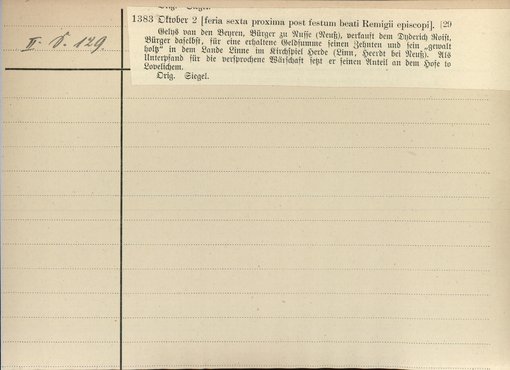 1383 Oktober 2 [feria sexta proxima post festum beati Remigii episcopi]. [29
Gelys van den Beyren, Bürger zu Nusse (Neuß), verkauft dem Dyderich Roist,
Bürger daselbst, für eine erhaltene Geldsumme seinen Zehnten und sein „gewalt
holtz“ in dem Lande Linne im Kirchspiel Herde (Linn, Heerdt bei Neuß). Als
Unterpfand für die versprochene Wärschaft setzt er seinen Anteil an dem Hofe to
Lovelichem.
Orig. Siegel.
II. S. 129